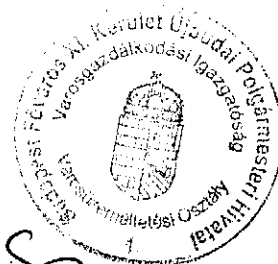 Budapest Főváros XI. Kerület Újbudai Polgármesteri Hivatal
Városgazdálkodási Igazgatóság
Városüzemeltetési Osztály
1.